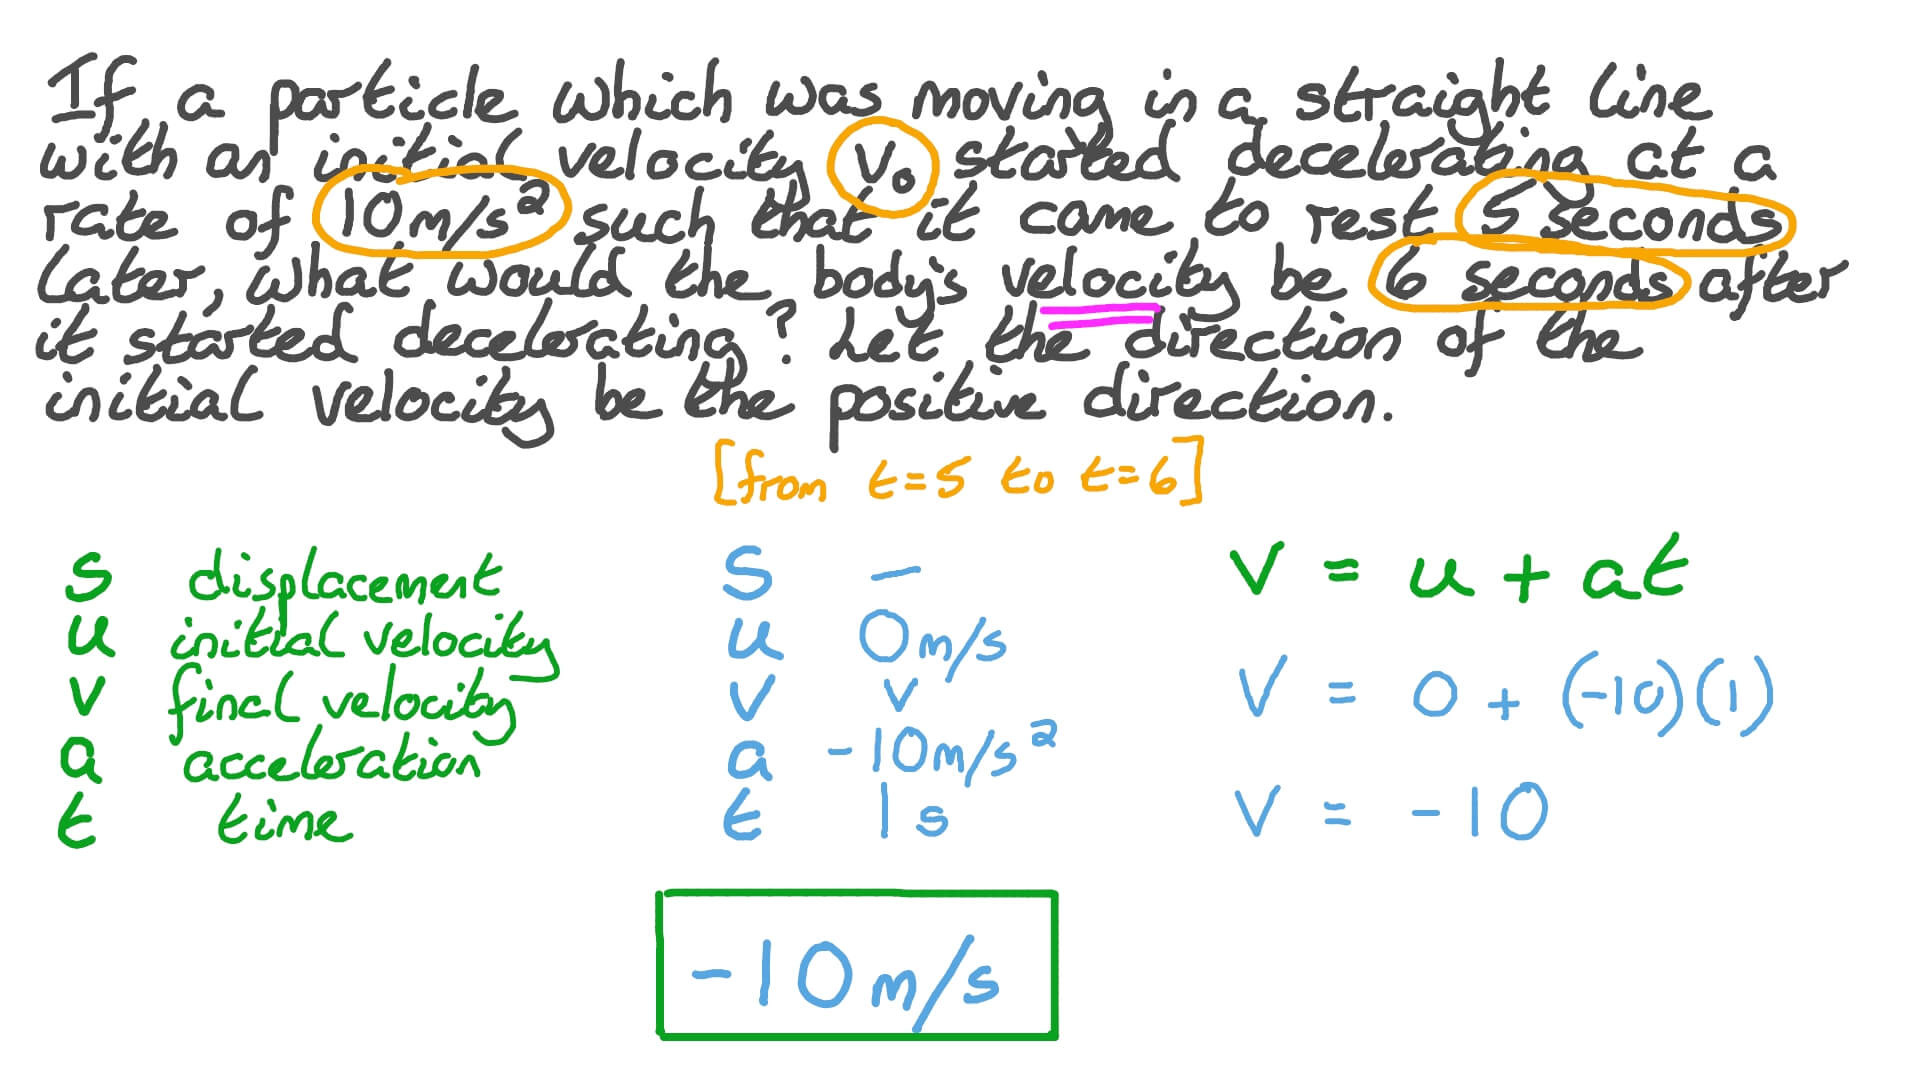 If a particle which was moving in a straight line
with an initial velocity v₀ started decelerating at a
rate of 10m/s² such that it came to rest 5 seconds
later, what would the body's velocity be 6 seconds after
it started decelerating? Let the direction of the
initial velocity be the positive direction.
[from t=5 to t=6]
s displacement
u initial velocity
v final velocity
a acceleration
t time
s –
u 0m/s
v v
a -10m/s²
t 1s
v = u + at
v = 0 + (-10)(1)
v = -10
-10m/s